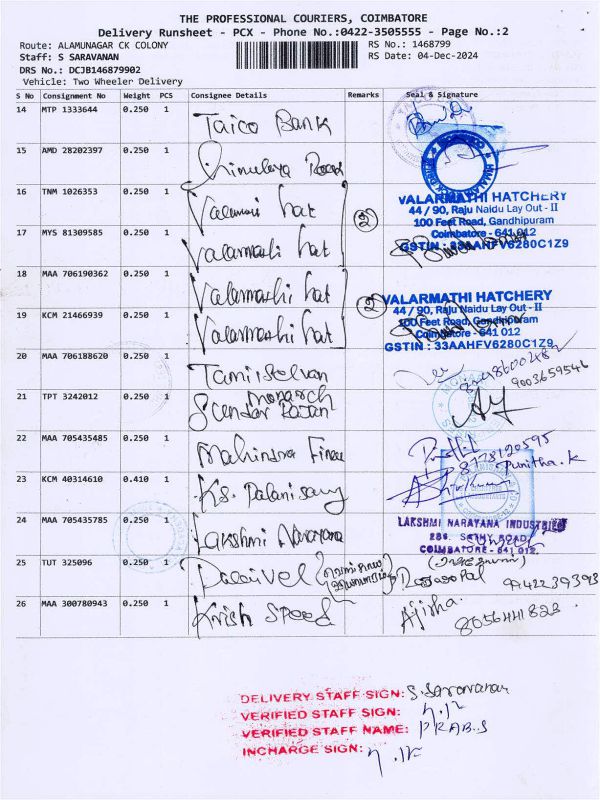 THE PROFESSIONAL COURIERS, COIMBATORE
Delivery Runsheet - PCX - Phone No.:0422-3505555 - Page No.:2
Route: ALAMUNAGAR CK COLONY
RS No.: 1468799
Staff: S SARAVANAN
RS Date: 04-Dec-2024
DRS No.: DCJB146879902
Vehicle: Two Wheeler Delivery
S No Consignment No Weight PCS Consignee Details Remarks Seal & Signature
14 MTP 1333644 0.250 1 Taico Bank
15 AMD 28202397 0.250 1
16 TNM 1026353 0.250 1 hat 2
VALARMATHI HATCHERY
44 / 90, Raju Naidu Lay Out - II
100 Feet Road, Gandhipuram
Coimbatore - 641 012
GSTIN : 33AAHFV6280C1Z9
17 MYS 81309585 0.250 1 Valarmathi hat
18 MAA 706190362 0.250 1 Valarmathi hat 2
VALARMATHI HATCHERY
44 / 90, Raju Naidu Lay Out - II
100 Feet Road, Gandhipuram
Coimbatore - 641 012
GSTIN : 33AAHFV6280C1Z9
19 KCM 21466939 0.250 1 Valarmathi hat
20 MAA 706188620 0.250 1 Tamilselvan
9003659546
21 TPT 3242012 0.250 1 monarch
22 MAA 705435485 0.250 1 Mahindra Finan 8778120595
Punitha.K
23 KCM 40314610 0.410 1 Ks. Palanisamy
24 MAA 705435785 0.250 1 Lakshmi Narayana
LAKSHMI NARAYANA INDUSTRIES
286, SATHY ROAD,
COIMBATORE - 641 012.
25 TUT 325096 0.250 1 Rajagopal 9442239393
26 MAA 300780943 0.250 1 Krish Speed Ajisha. 8056441823
DELIVERY STAFF SIGN: S. Saravanan
VERIFIED STAFF SIGN:
VERIFIED STAFF NAME: PRAB.S
INCHARGE SIGN: